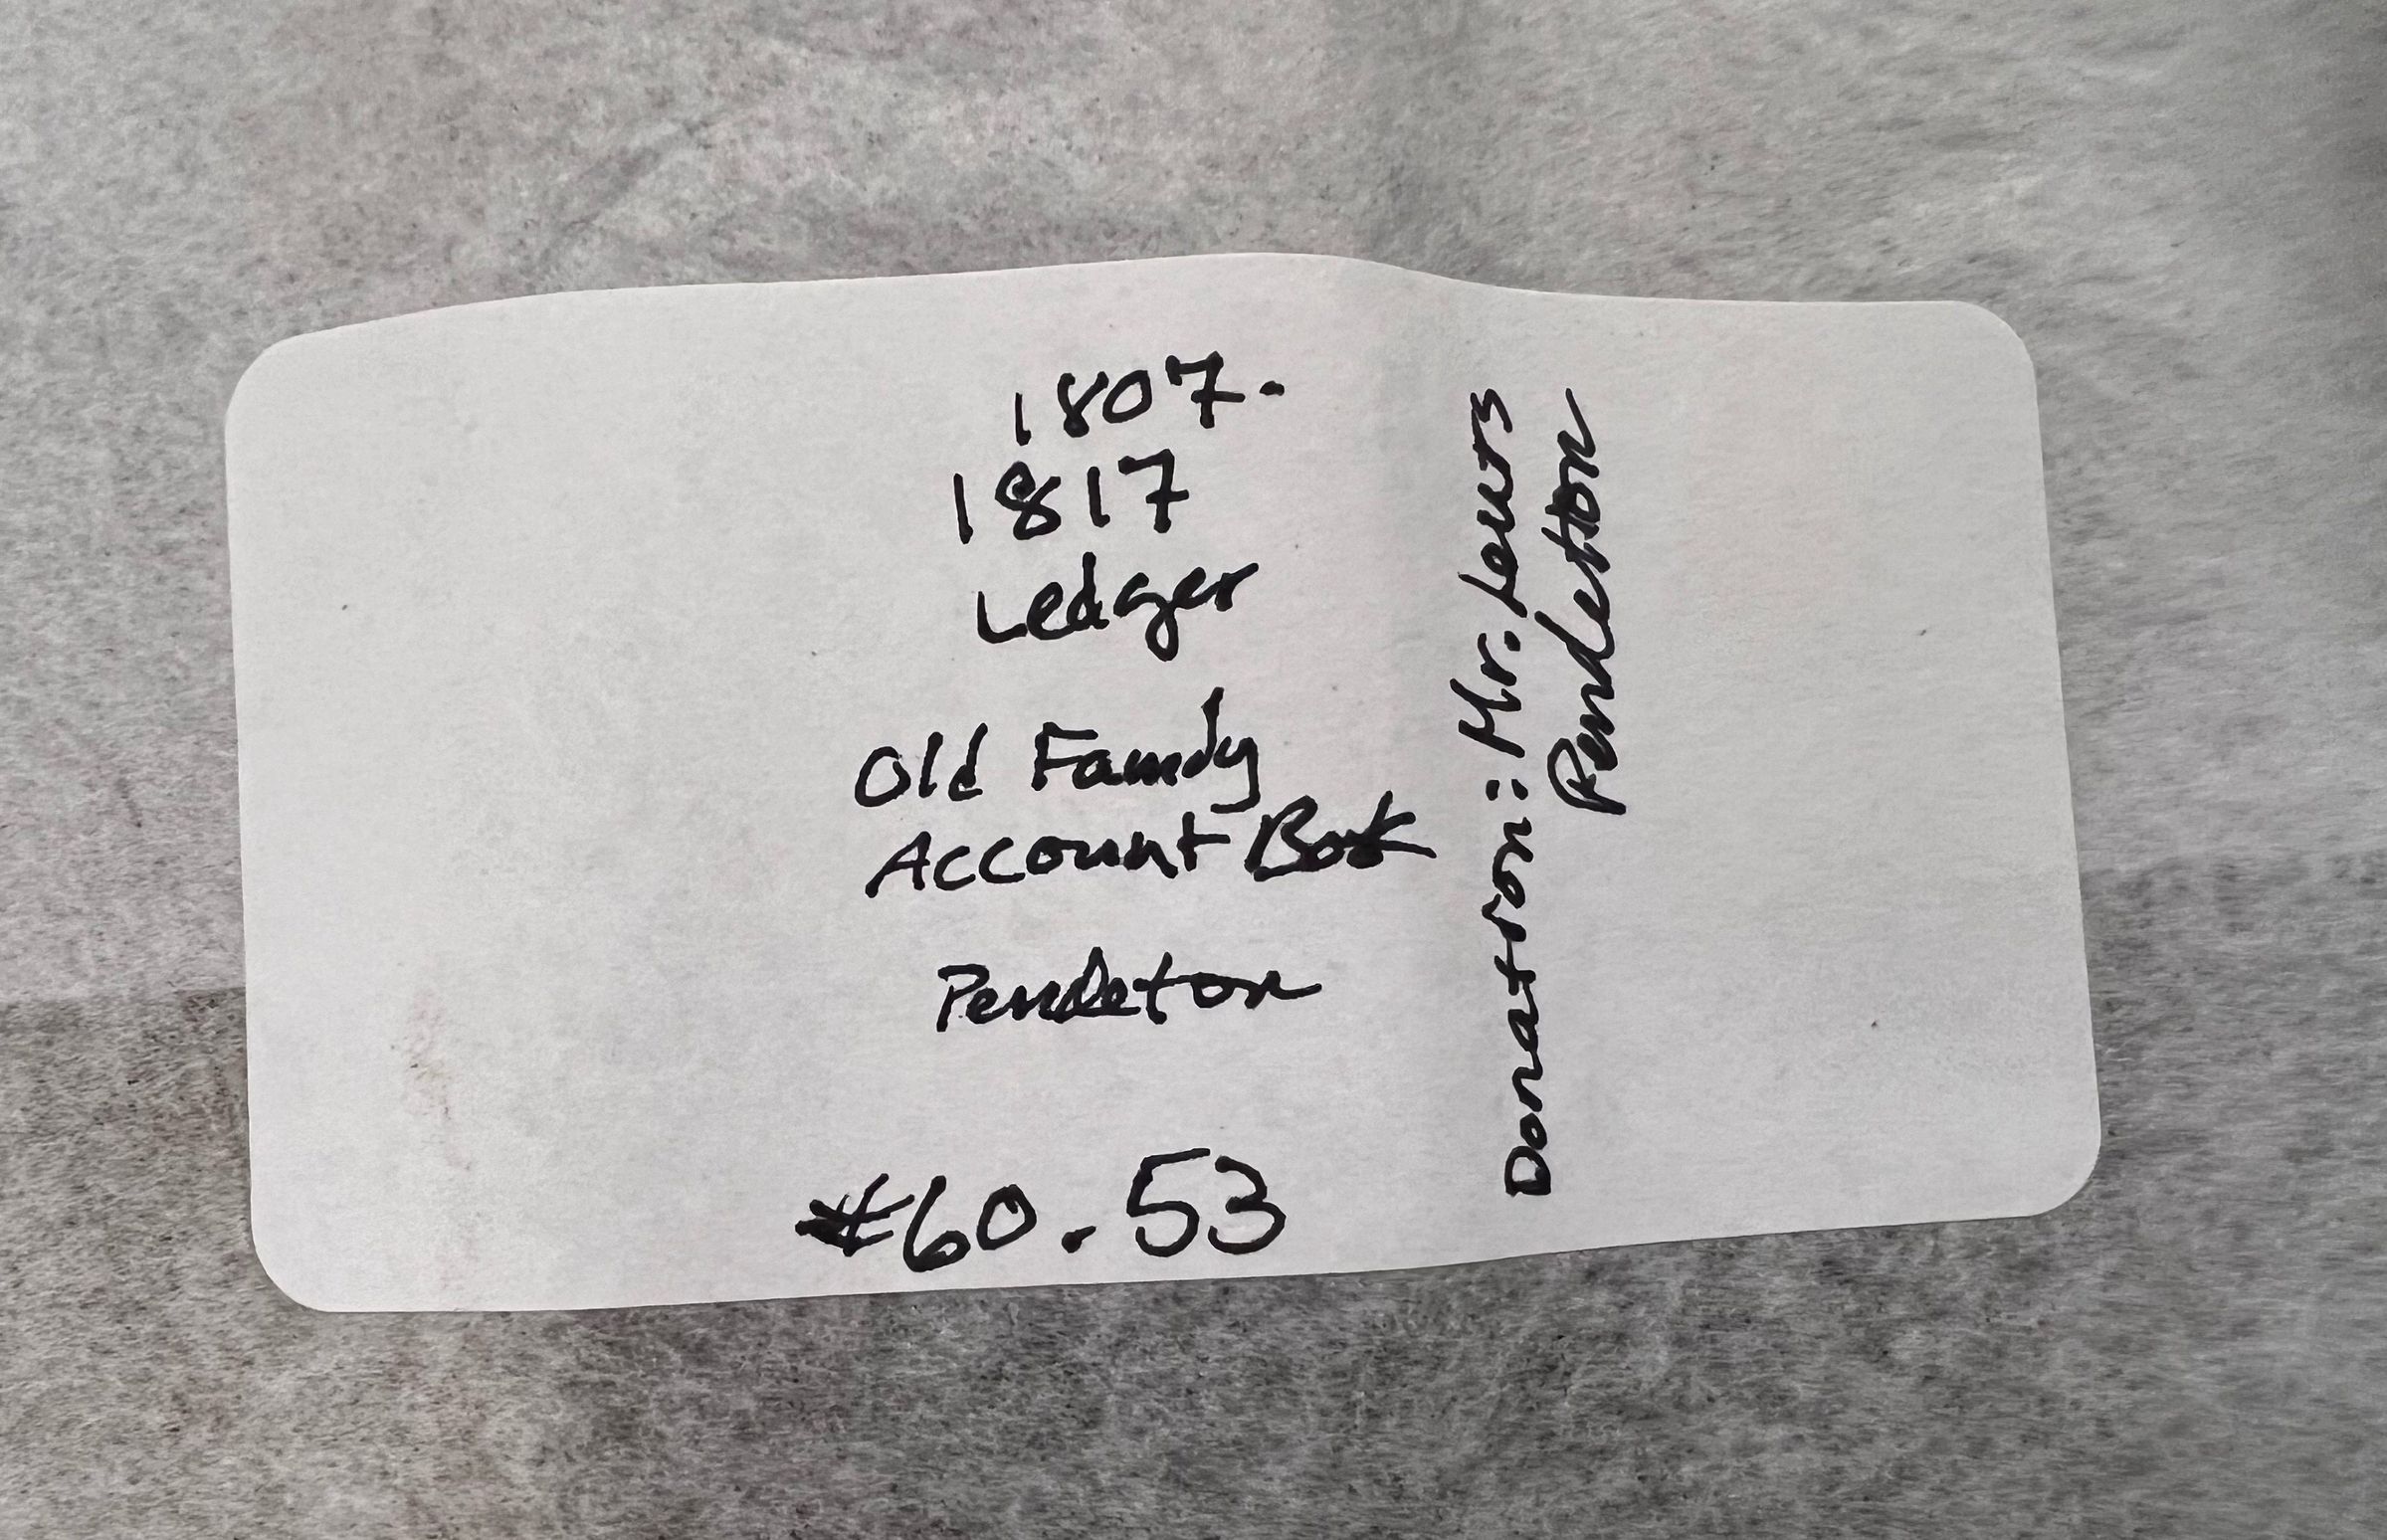 1807-
1817
Ledger
Old Family
Account Book
Pendleton
#60.53
Donation: Mr. Lewis
Pendleton